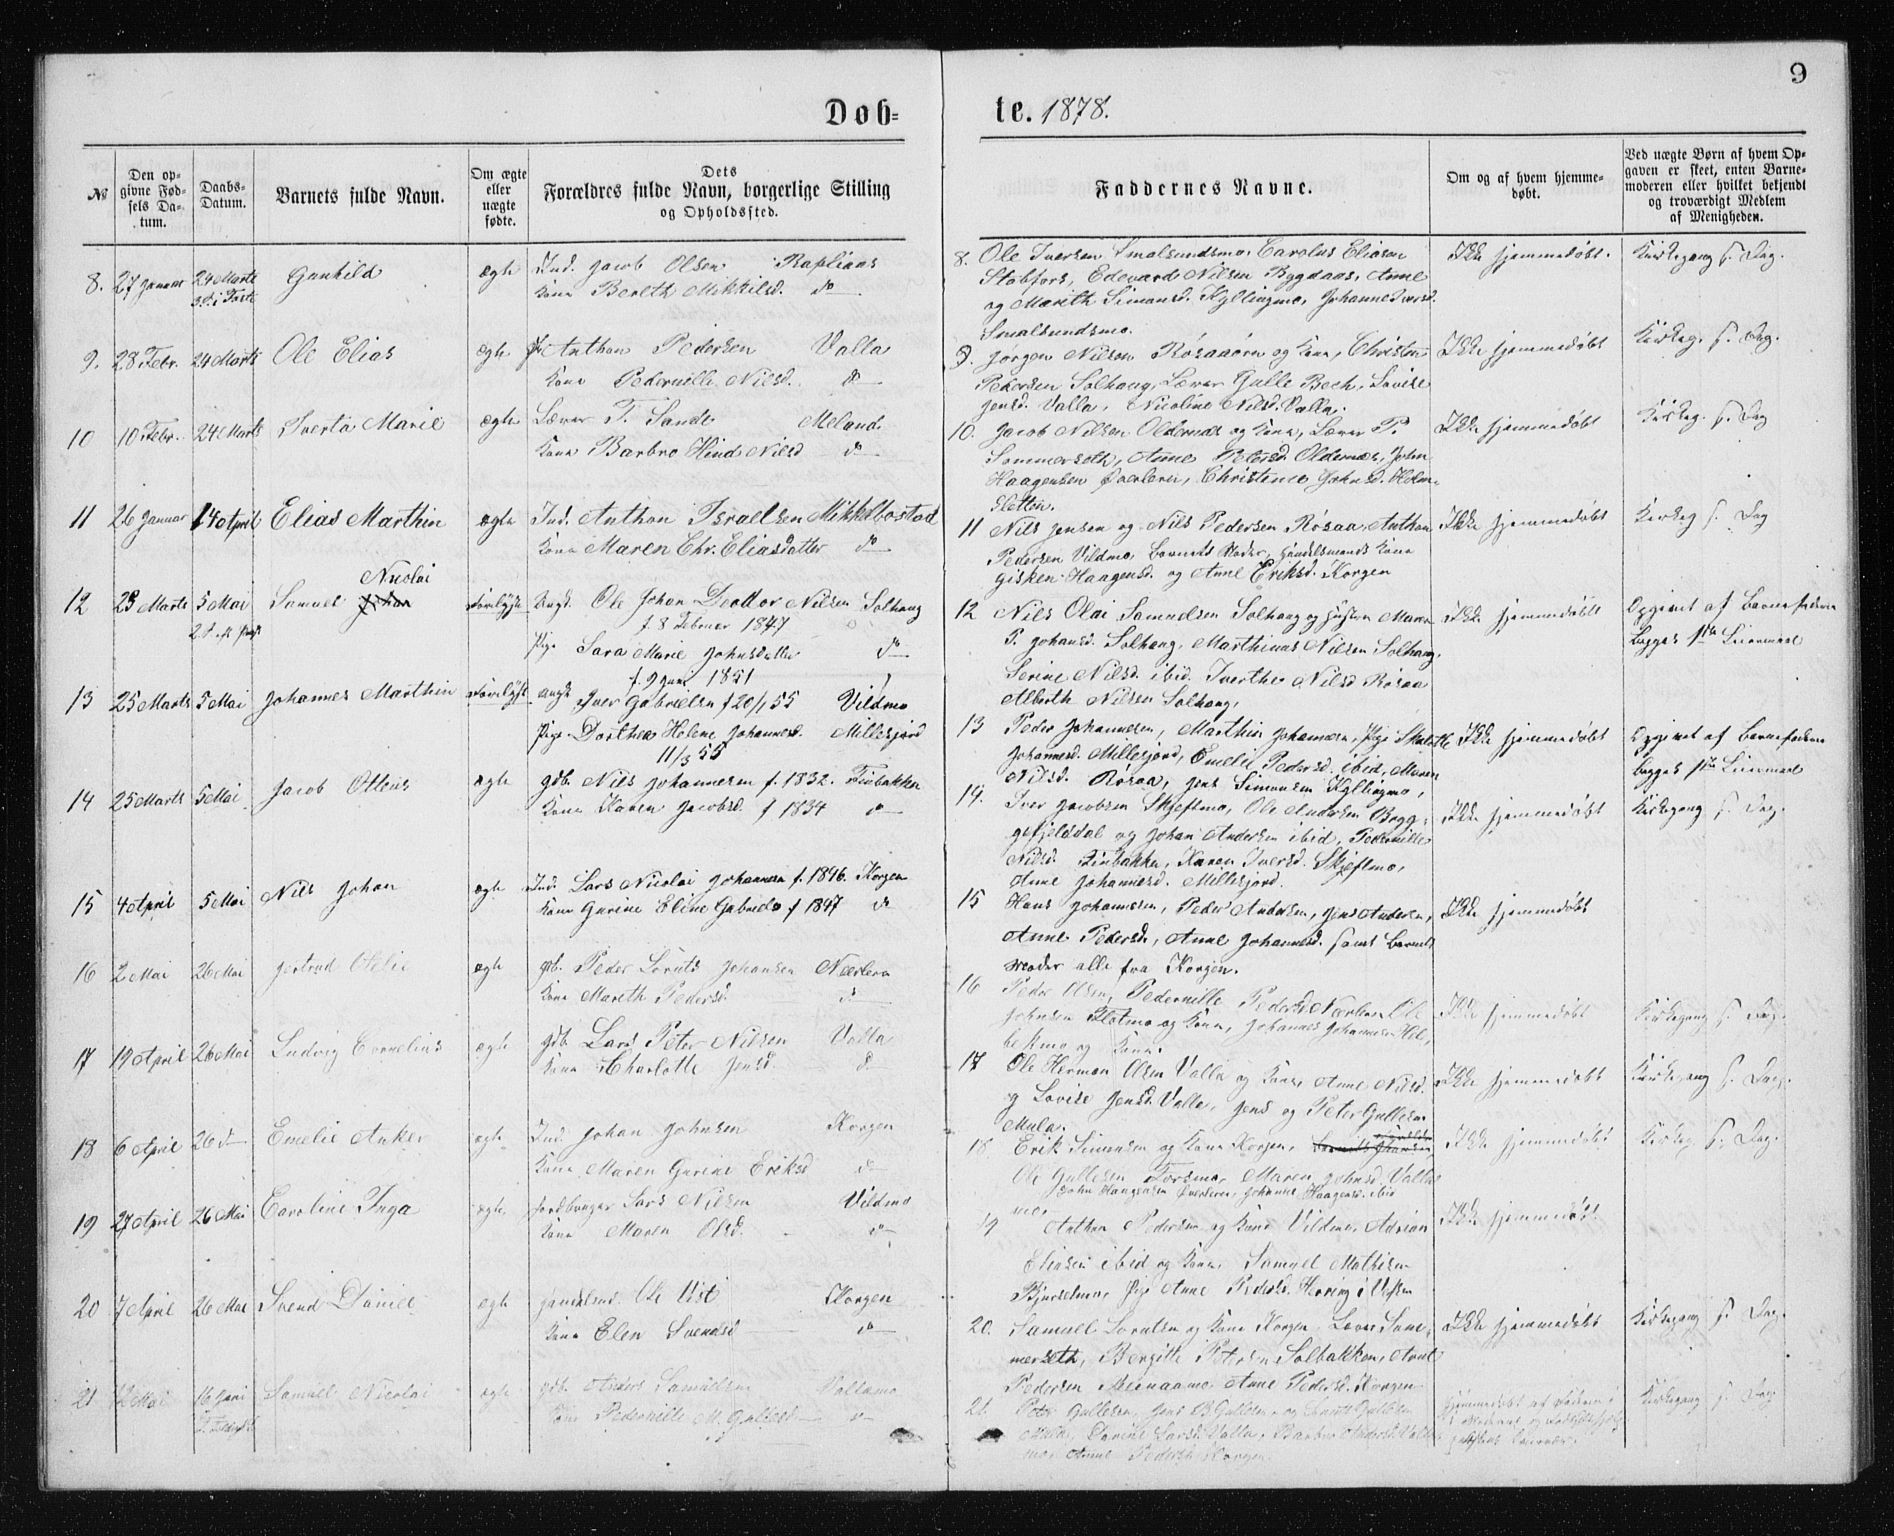 9
Døb-
te. 1878.
№
Den op-
givne Fød-
sels Da-
tum.
Daabs-
Datum.
Barnets fulde Navn.
Om ægte
eller
uægte
fødte.
Dets
Forældres fulde Navn, borgerlige Stilling
og Opholdssted.
Faddernes Navne.
Om og af hvem hjemme-
døbt.
Ved uægte Børn af hvem Op-
gaven er skeet, enten Barne-
moderen eller hvilket bekjendt
og troværdigt Medlem
af Menigheden.
8. 27 Januar 24 Marts Gunhild ægte Ind. Jacob Olsen
3 S. i Faste Kone Bereth Mikkelsd. do
8. Ole Iversen Smalsundsmo, Carolus Eliasen
Stabfors, Edevard Nilsen Bygdaas, Anne
og Marith Simonsd. Kyllingmo, Johanne Iversd.
Smalsundsmo.
Ikke hjemmedøbt.
Kirkegang s. Dag.
9. 28 Febr. 24 Marts Ole Elias ægte Anthon Pedersen Valla
Kone Pedernille Nilsd. do
9. Jørgen Nilsen Røsaaøren og Kone, Christen
Pedersen Solhaug, Lærer Gulle Bech, Lovise
Jensd. Valla, Nicoline Nilsd. Valla.
Ikke hjemmedøbt
Kirkeg. s. Dag.
10 10 Febr. 24 Marts Iverta Marie ægte Lærer T. Sande Meland
Kone Barbro Hind Nilsd do
10. Jacob Nilsen Oldernæs og Kone, Lærer P.
Sommerseth, Anne Petersd. Oldernæs, John
Haagensen Øverleren, Christence Johnsd. Holm-
sletten.
Ikke hjemmedøbt
Kirkeg. s. Dag
11 26 Januar 14 April Elias Marthin ægte Ind. Anthon Israelsen Mikkelbostad
Kone Maren Chr. Eliasdatter do
11 Nils Jensen og Nils Pedersen Røsaa, Anthon
Pedersen Vildmo, Barnets Moder, Handelsmands Kone
Gisken Haagensd. og Anne Eriksd. Korgen
Ikke hjemmedøbt
Kirkeg s. Dag
Nicolai
12 25 Marts 5 Mai Samuel Johan Ungk. Ole Johan Deodor Nilsen Solhaug
f 8 Februar 1847
Pige Sara Marie Johnsdatter do
f. 9 Juni 1851
12 Nils Olai Samuelsen Solhaug og Hustru Maren
P. Johansd. Solhaug, Marthinus Nilsen Solhaug,
Serine Nilsd. ibid. Iverthe Nilsd Røsaa
Alberth Nilsen Solhaug,
Ikke hjemmedøbt
Opgivet af Barnefaderen
begges 1ste Leiermaal
13 25 Marts 5 Mai Johannes Marthin Ungk Iver Gabrielsen f 20/1 55 Vildmo
Pige Dorthea Helene Johannesd. Millesjord
11/3 55
13 Peder Johannesen, Marthin Johannesen, Pige
Johannesd. Millesjord, Emelie Pedersd. ibid, Maren
Nilsd. Røsaa, Jens Simonsen Kyllingmo,
Ikke hjemmedøbt
Opgivet af Barnefaderen
begges 1ste Leiermaal
14 25 Marts 5 Mai Jacob Otteus ægte gdb. Nils Johannesen f. 1832. Finbakken
Kone Karen Jacobsd. f 1834 do
14. Iver Jacobsen Skjeftmo, Ole Andersen Bryg-
gefjelddal og Johan Andersen ibid, Pedernille
Nilsd. Finbakken, Karen Iversd. Skjeftmo,
Anne Johannesd. Millesjord.
Ikke hjemmedøbt
Kirkegang s. Dag.
15 4 April 5 Mai Nils Johan ægte Ind. Lars Nicolai Johannesen f. 1846. Korgen
Kone Gurine Eline Gabrielsd f 1847 do
15 Hans Johannesen, Peder Andersen, Jens Andersen,
Anne Pedersd., Anne Johannesd. samt Barnets
Moder alle fra Korgen.
Ikke hjemmedøbt
16 2 Mai 26 Mai Jertrud Otelie ægte gdb. Peder Lorents Johansen Nærleren
Kone Mareth Pedersd. do
16 Peder Olsen, Pedernille Pedersd Nærleren, Ole
Johnsen Flotmo og Kone, Johannes Johannesen Hol-
bekmo og Kone.
Ikke hjemmedøbt
Kirkegang s. Dag.
17 19 April 26 Mai Ludvig Cornelius ægte gdb. Lars Peter Nilsen Valla
Kone Charlotte Jensd. do
17 Ole Herman Olsen Valla og Kone, Anne Nilsd.
og Lovise Jensd. Valla, Jens og Peter Gullesen
Mula.
Ikke hjemmedøbt
Kirkegang s. Dag.
18 6 April 26 do Emelie Anker ægte Ind. Johan Johnsen Korgen
Kone Maren Gurine Eriksd do
18. Erik Simonsen og Kone Korgen,
Ole Gullesen Forsmo, Maren Johnsd. Valla-
John Haagensen Øverleren, Johanne Haagensd. ibid
mo.
Ikke hjemmedøbt
Kirkeg. s. Dag.
19 27 April 26 Mai Caroline Inga ægte Jordbruger Lars Nilsen Vildmo
Kone Maren Olsd. do
19 Anthon Pedersen og Kone Vildmo, Adrian
Eliasen ibid og Kone, Samuel Mathisen
Bjurselmo, Pige Anne Pedersd. Herring i Vefsen
Ikke hjemmedøbt
20 7 April 26 Mai Svend Daniel ægte Handelsmd. Ole Vist Korgen
Kone Elen Svendsd do
20. Samuel Lorntsen og Kone Korgen, Lærer Som-
merseth, Bergitte Petersen Solbakken, Arnt
Pedersen, Anne Pedersd. Korgen
Ikke hjemmedøbt
Kirkegang s. Dag
21 12 Mai 16 Juni Samuel Nicolai ægte gdb. Anders Samuelsen Vallamo
Kone Pedernille M. Gullesd do
21. Peter Gullesen, Jens B. Gullesen og Gullesen
Mula, Dorine Larsd Valla, Barbro Andersd. Valla-
mo, Anne Pedersd. Korgen.
Hjemmedøbt af
Kirkegang s. Dag